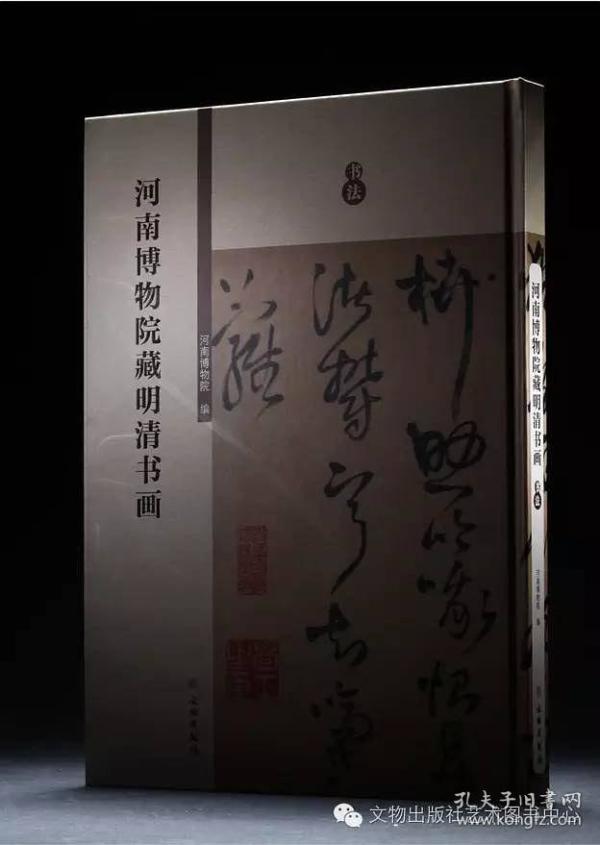 书法
河南博物院藏明清书画
河南博物院 编
文物出版社
河南博物院藏明清书画
书法
河南博物院 编
文物出版社
文物出版社艺术图书中心
孔夫子旧书网
www.kongfz.com